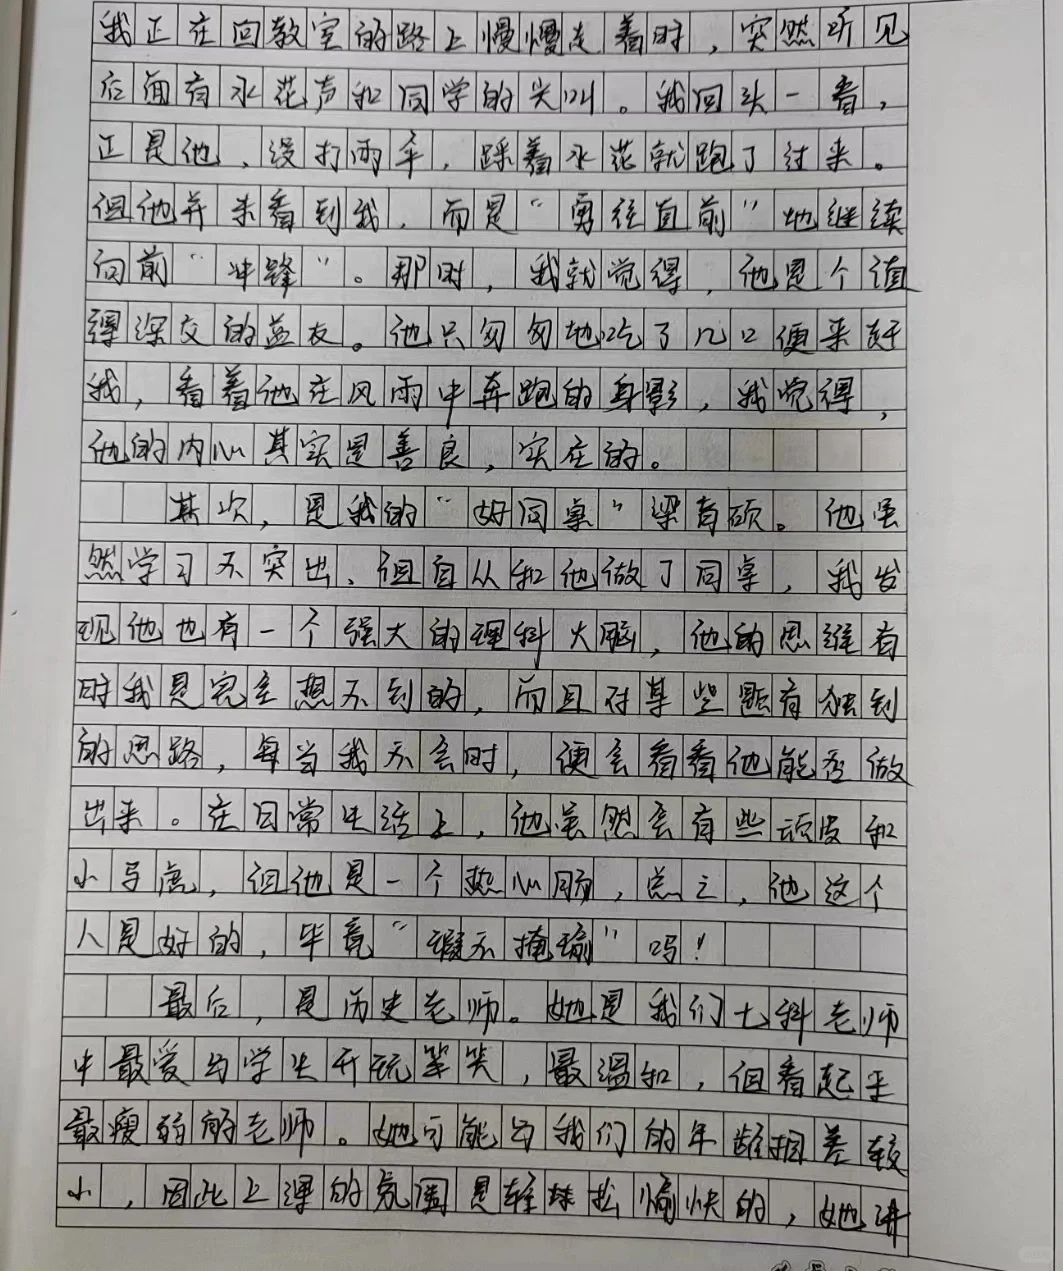 我正在回教室的路上慢慢走着时，突然听见
后面有水花声和同学的尖叫。我回头一看，
正是他，没打雨伞，踩着水花就跑了过来。
但他并未看到我，而是“勇往直前”地继续
向前“冲锋”。那时，我就觉得，他是个值
得深交的益友。他只匆匆地吃了几口便来赶
我，看着他在风雨中奔跑的身影，我觉得，
他的内心其实是善良，实在的。
其次，是我的“好同桌”梁育硕。他虽
然学习不突出，但自从和他做了同桌，我发
现他也有一个强大的理科大脑，他的思维有
时我是完全想不到的，而且对某些题有独到
的思路，每当我不会时，便会看看他能否做
出来。在日常生活上，他虽然会有些顽皮和
小马虎，但他是一个热心肠，总之，他这个
人是好的，毕竟“瑕不掩瑜”吗！
最后，是历史老师。她是我们七科老师
中最爱与学生开玩笑，最温和，但看起来
最瘦弱的老师。她可能与我们的年龄相差较
小，因此上课的氛围是轻松愉快的，她讲